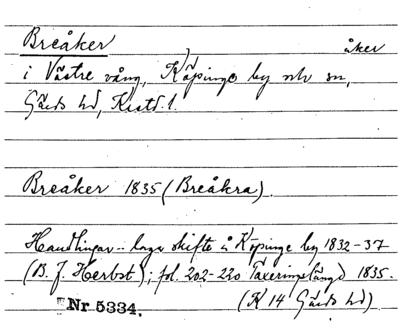 Breåker, åker
i Västre vång, Köpinge by och sn,
Gärds hd, Kristd. l.
Breåker 1835 (Breåkra).
Handlingar .. laga skifte å Köpinge by 1832-37
(B. J. Herbst); fol. 202-220 Taxeringslängd 1835.
Nr 5334. (K 14 Gärds hd)